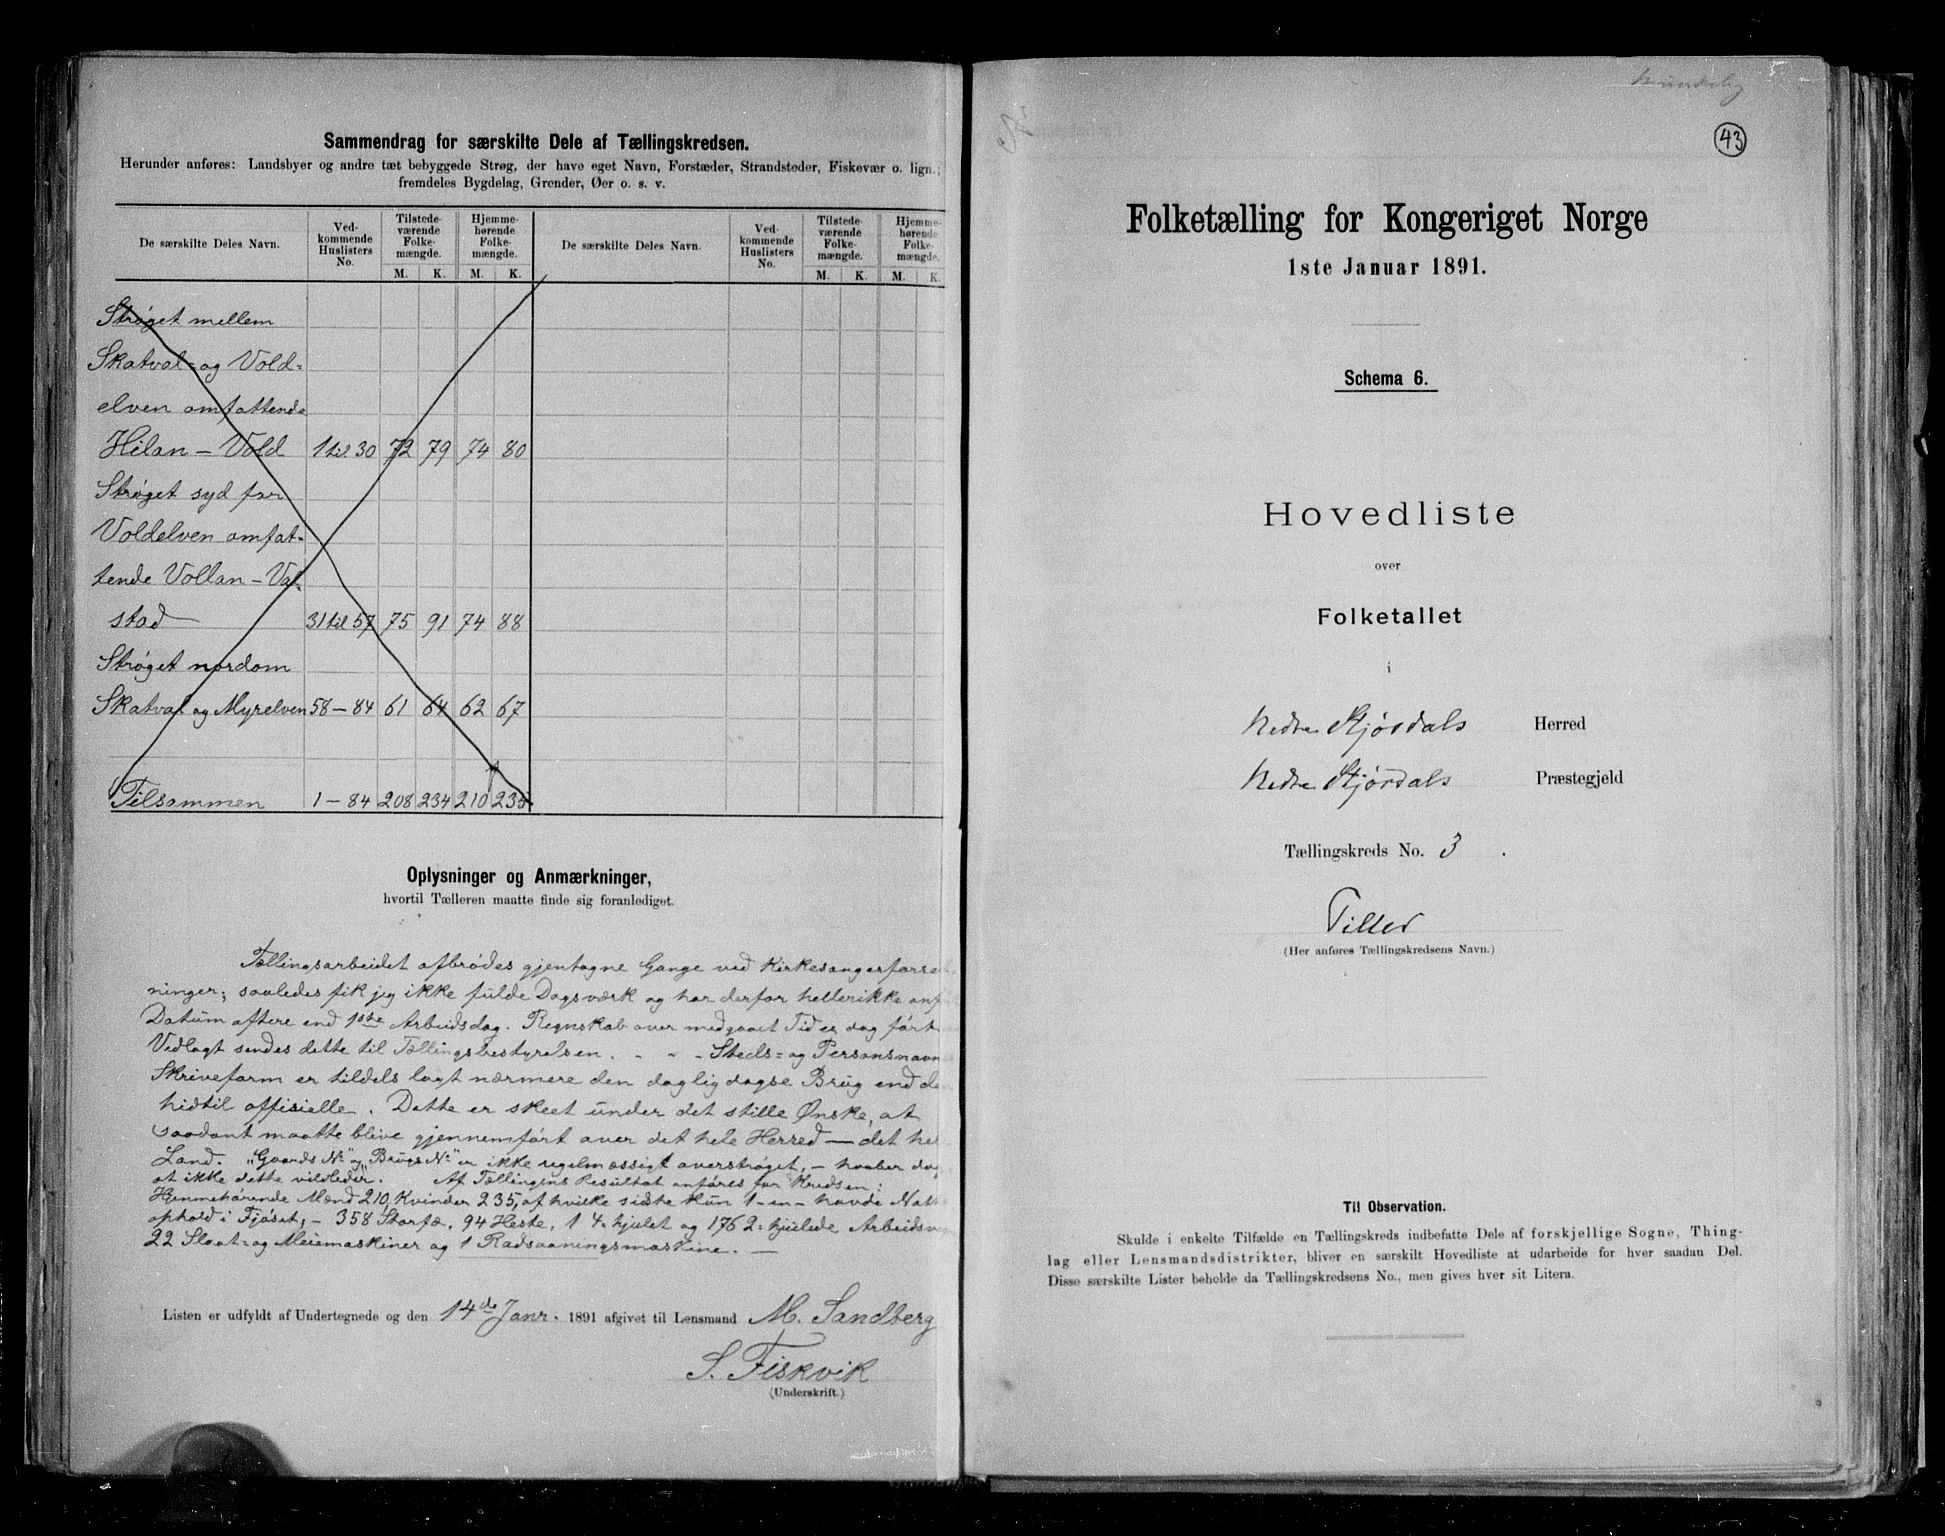 Sammendrag for særskilte Dele af Tællingskredsen.
Herunder anføres: Landsbyer og andre tæt bebyggede Strøg, der have eget Navn, Forstæder, Strandsteder, Fiskevær o. lign.;
fremdeles Bygdelag, Grender, Øer o. s. v.
De særskilte Deles Navn.
Ved-
kommende
Huslisters
No.
Tilstede-
værende
Folke-
mængde.
M. K.
Hjemme-
hørende
Folke-
mængde.
M. K.
De særskilte Deles Navn.
Ved-
kommende
Huslisters
No.
Tilstede-
værende
Folke-
mængde.
M. K.
Hjemme-
hørende
Folke-
mængde.
M. K.
Strøget mellem
Skatval- og Vold-
elven omfattende
Hélan - Vold 1 til 30 72 79 74 80
Strøget syd for
Voldelven omfat-
tende Vollan - Val-
stad 31 til 57 75 91 74 88
Strøget nordom
Skatval og Myrelven 58 - 84 61 64 62 67
Tilsammen 1 - 84 208 234 210 235
Oplysninger og Anmærkninger,
hvortil Tælleren maatte finde sig foranlediget.
Tællingsarbeidet afbrødes gjentagne Gange ved Kirkesangerforret
ninger; saaledes fik jeg ikke fulde Dagsværk og har derfor hellerikke anf
Datum oftere end 1ste Arbeidsdag. Regnskab over medgaaet Tid er dog ført
Vedlagt sendes dette til Tællingsbestyrelsen. - - - Steds- og Personsnavn
Skriveform er tildels lagt nærmere den dagligdagse Brug end de
hidtil offisielle. Dette er skeet under det stille Ønske, at
saadant maatte blive gjennemført over det hele Herred - det he
Land. "Gaards No" og "Brugs No" er ikke regelmæssigt overstrøget, - haaber dog
at ikke dette vildleder. Af Tællingens Resultat anføres for Kredsen:
Hjemmehørende Mænd 210, Kvinder 235, af hvilke sidste kun 1 - en - havde Natte
ophold i Fjøset, - 358 Storfæ, 94 Heste, 1 4-hjulet og 176 2-hjulede Arbeidsvo
22 Slaat- og Meiemaskiner og 1 Radsaaningsmaskine. -
Listen er udfyldt af Undertegnede og den 14de Janr. 1891 afgivet til Lensmand M. Sandberg
S. Fiskvik
(Underskrift.)
43
Folketælling for Kongeriget Norge
1ste Januar 1891.
Schema 6.
Hovedliste
over
Folketallet
i
Nedre Stjørdals Herred
Nedre Stjørdals Præstegjeld
Tællingskreds No. 3.
Tiller
(Her anføres Tællingskredsens Navn.)
Til Observation.
Skulde i enkelte Tilfælde en Tællingskreds indbefatte Dele af forskjellige Sogne, Thing-
lag eller Lensmandsdistrikter, bliver en særskilt Hovedliste at udarbeide for hver saadan Del.
Disse særskilte Lister beholde da Tællingskredsens No., men gives hver sit Litera.